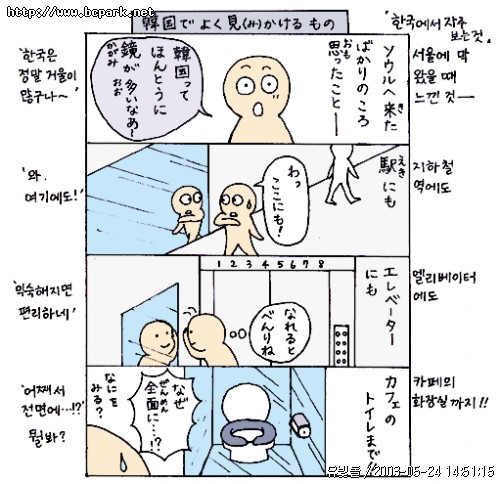 http://www.bcpark.net
韓国でよく見(み)かけるもの
한국에서 자주
보는것.
ソウルへ来た
きた
ばかりのころ
思ったこと──
おも
韓国って
ほんとうに
鏡が多いなあ〜
かがみ
おお
'한국은
정말 거울이
많구나~'
서울에 막
왔을 때
느낀 것──
駅にも
えき
わっ
ここにも!
'와.
여기에도!'
지하철
역에도
エレベーター
にも
1 2 3 4 5 6 7 8
なれると
べんりね
'익숙해지면
편리하네'
엘리베이터
에도
カフェの
トイレまで!!
なぜ
全面に…!?
ぜんめん
なにを
みる?
'어째서
전면에…!?'
뭘봐?
카페의
화장실까지!!
2003-05-24 14:51:15